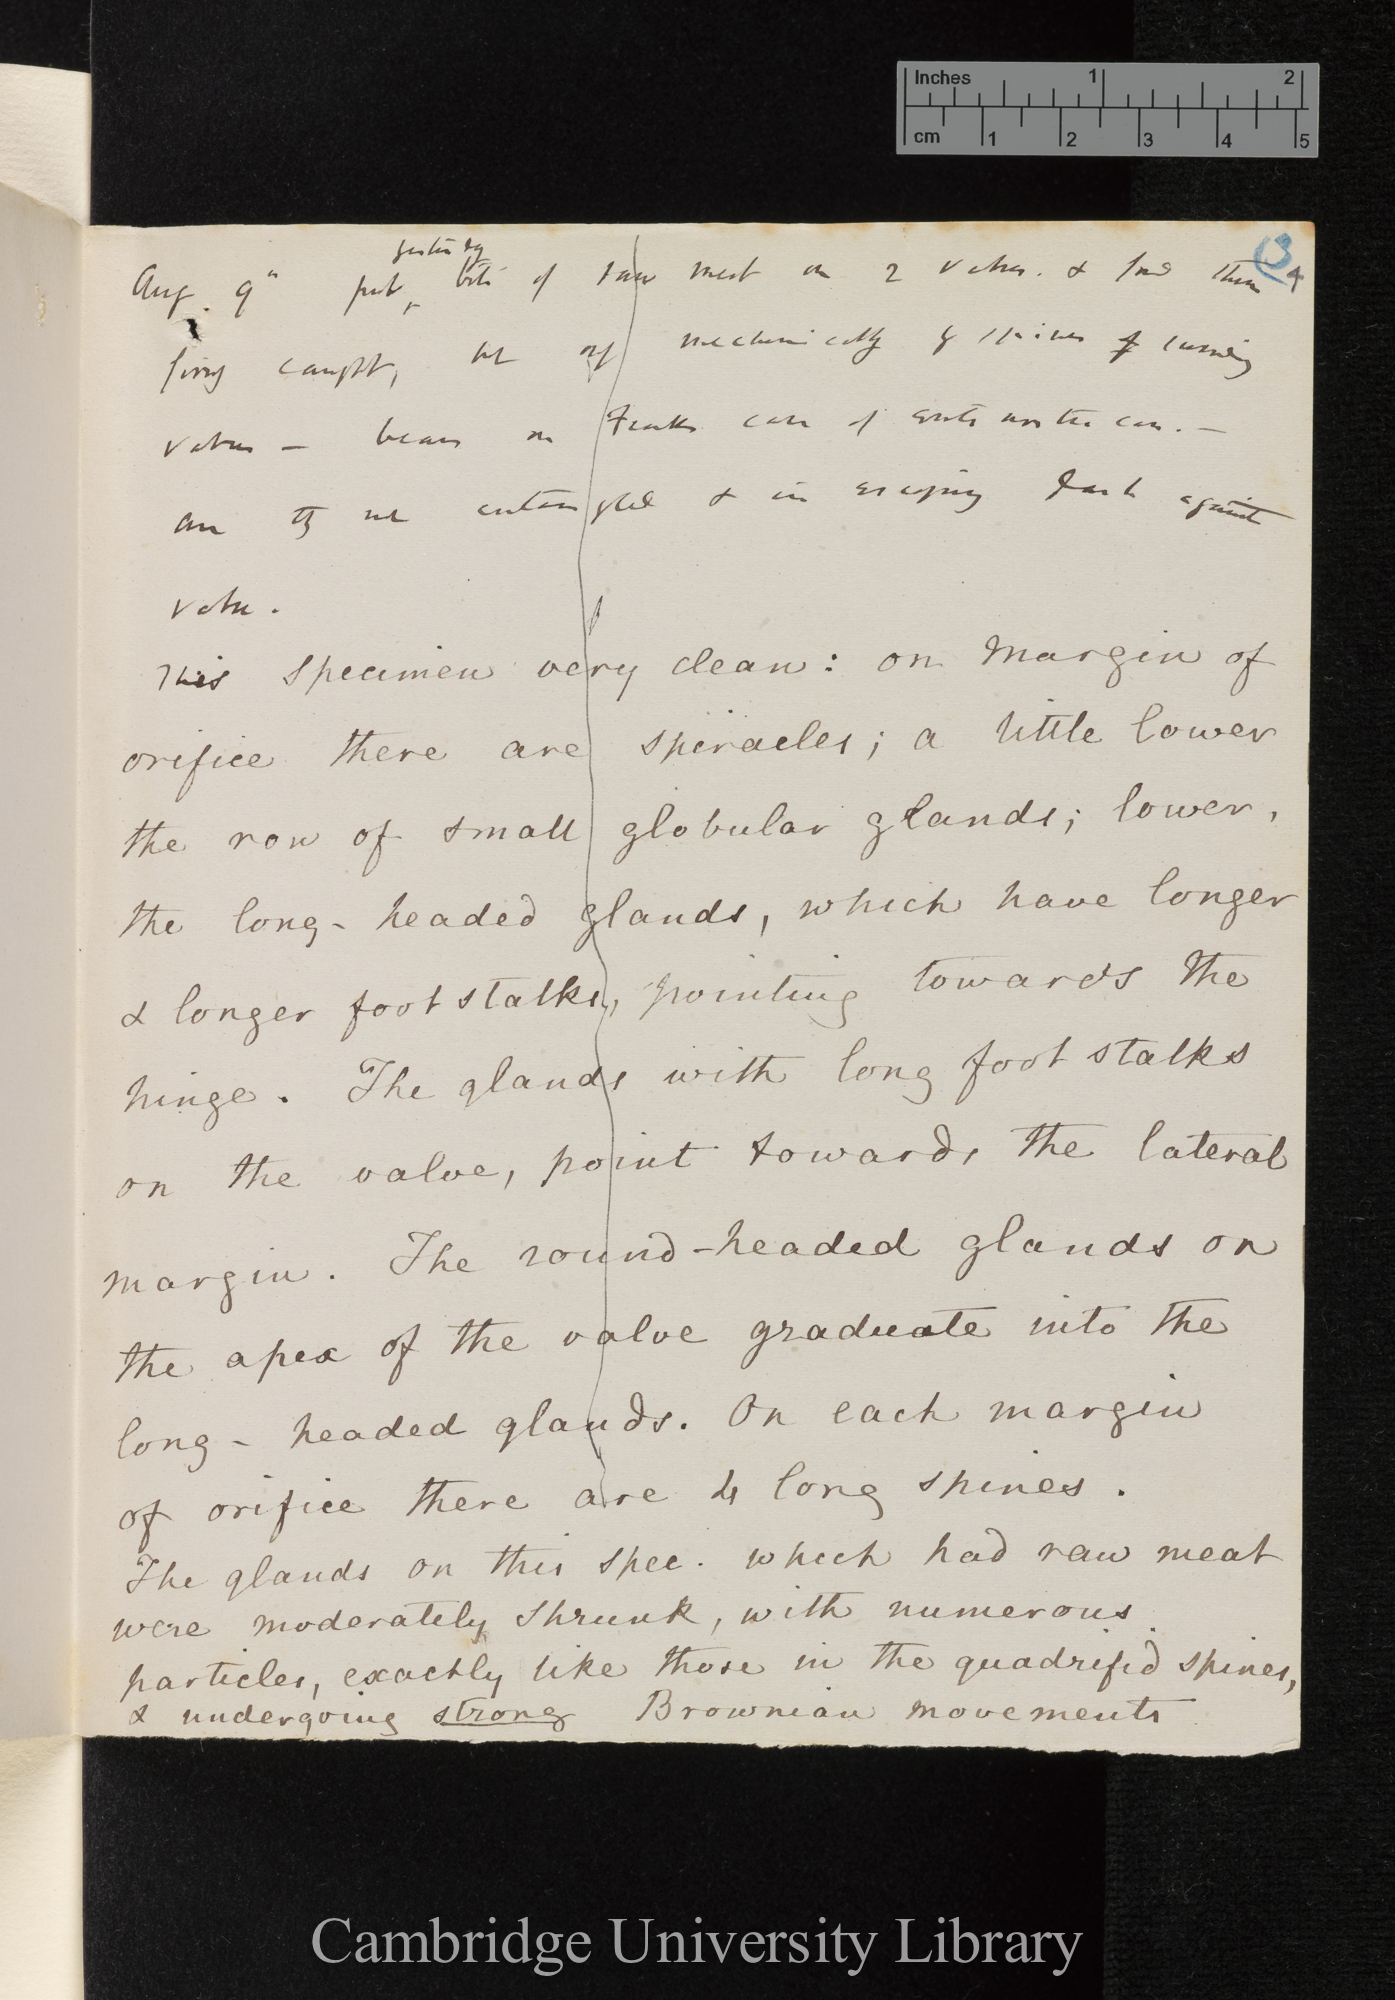 Inches 1 2
cm 1 2 3 4 5
(3
4
yesterday
Aug. 9" put bits of raw meat on 2 valves. & find them
firmly caught, but only mechanically by spines &
valves — bears on Franks case of
are they not entangled & in escaping dash against
valve.
This specimen very clean: on margin of
orifice there are spiracles; a little lower
the row of small globular glands; lower,
the long-headed glands, which have longer
& longer footstalks, pointing towards the
hinge. The glands with long foot stalks
on the valve, point towards the lateral
margin. The round-headed glands on
the apex of the valve graduate into the
long-headed glands. On each margin
of orifice there are 4 long spines.
The glands on this spec. which had raw meat
were moderately shrunk, with numerous
particles, exactly like those in the quadrifid spines,
& undergoing strong Brownian movements
Cambridge University Library